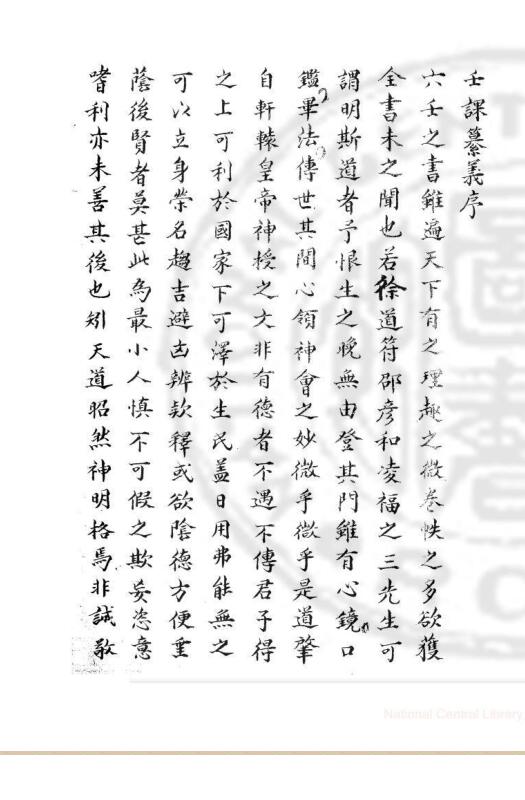 壬課纂義序
六壬之書雖遍天下有之理趣之微卷帙之多欲獲
全書未之聞也若徐道符邵彦和凌福之三先生可
謂明斯道者予恨生之晚無由登其門雖有心鏡口
鑑畢法傳世其間心領神會之妙微乎微乎是道肇
自軒轅皇帝神授之文非有德者不遇不傳君子得
之上可利於國家下可澤於生民蓋日用弗能無之
可以立身榮名趨吉避凶辨欵釋或欲陰德方便重
蔭後賢者莫甚此為最小人慎不可假之欺妄恣意
嗜利亦未善其後也矧天道昭然神明格焉非誠敬
National Central Library